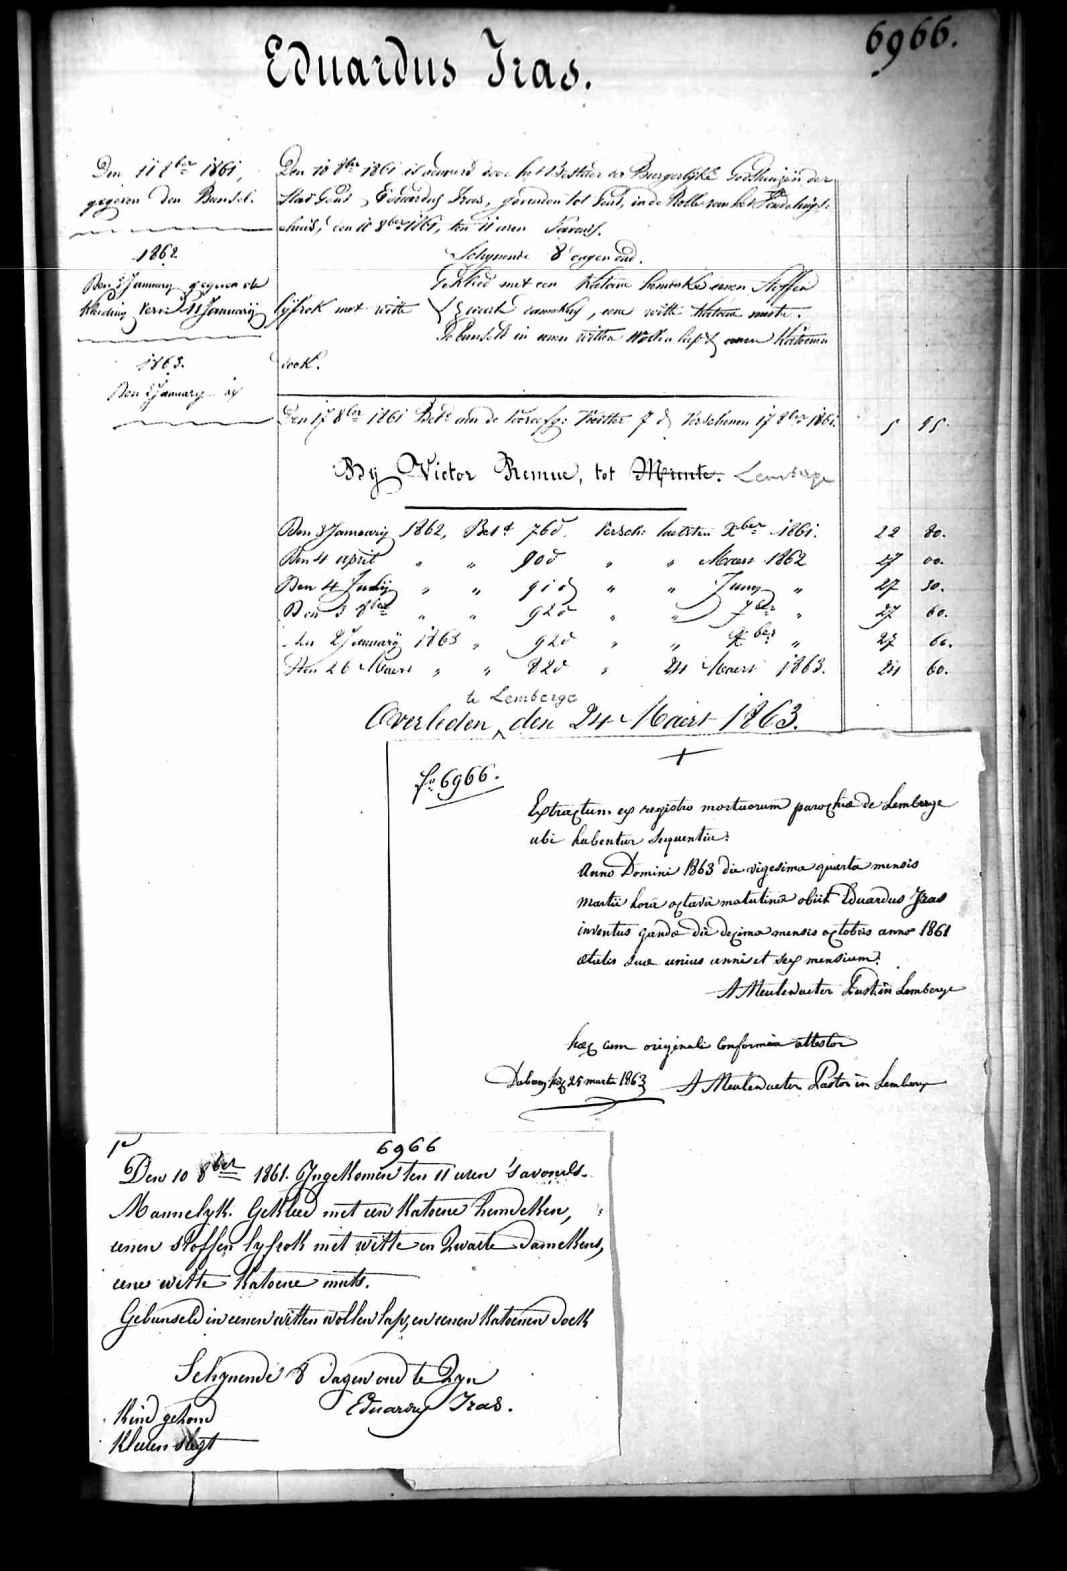 6966.
Eduardus Iras.
Den 11 8ber 1861,
gegeven den Bunsel.
1862
Den 2 January gegeven de
kleeding 11 January
1863.
Den 2 January
Den 10 8ber 1861 is door het Bestier der Burgerlyke Godshuizen der
Stad Gend, Eduardus Iras, gevonden tot Gent, in de Rolle van het
huis, den 10 8ber 1861, ten 11 uren 's avonds.
Schynende 8 dagen oud.
Gekleed met een katoene hemdeken eenen stoffen
lyfrok met witte zwarte damekens, eene witte katoene muts.
Gebunseld in eenen witten wollen lap eenen katoenen
doek.
Den 17 8ber 1861 Bet. aan de voedster 7 d. verschenen 17 8ber 1861. 5 95.
By Victor Remue, tot Munte. Lemberge
Den 3 January 1862, Betd. 76d. versch: laetsten Xber 1861. 22 80.
Den 4 april " " 90d " " Maert 1862 27 00.
Den 4 July " " 91d " " Juny " 27 30.
Den 3 8ber " " 92d " " 7ber " 27 60.
Den 2 January 1863 " 92d " " Xber " 27 60.
Den 26 Maert " " 82d " 24 Maert 1863. 24 60.
te Lemberge
Overleden, den 24 Maert 1863.
fo. 6966.
Extractum ex registro mortuorum parochiæ de Lemberge
ubi habentur sequentia:
Anno Domini 1863 die vigesima quarta mensis
martii hora octava matutina obiit Eduardus Iras
inventus gandæ die decima mensis octobris anno 1861
ætatis suæ unius anni et sex mensium.
A Meulewaeter Past. in Lemberge
hæc cum originali conformia attestor
Dabam hac 25 martii 1863 A Meulewaeter Pastor in Lemberge
6966
Den 10 8ber 1861. Ingekomen ten 11 uren 's avonds.
Mannelyk. Gekleed met een katoene hemdeken,
eenen stoffen lyfrok met witte en zwarte damekens,
eene witte katoene muts.
Gebunseld in eenen witten wollen lap, en eenen katoenen doek
Schynende 8 dagen oud te zyn
Kind gezond Eduardus Iras.
Kleeren slegt